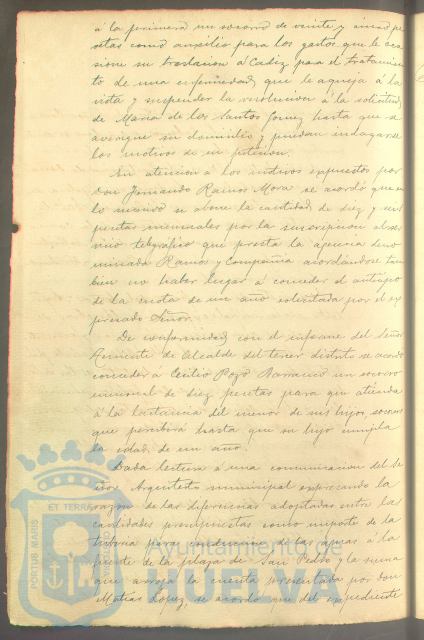 á la primera un socorro de veinte y cinco pe
setas como auxilio para los gastos que le oca
sione su traslacion á Cadiz para el tratamien
to de una enfermedad que le aqueja á la
vista y suspender la resolucion á la solicitud
de Maria de los Santos Gomez hasta que se
averigue su domicilio y puedan indagarse
los motivos de su peticion.
En atencion á los motivos expuestos por
Don Fernando Ramos Mora se acordó que
lo se abone la cantidad de diez y seis
pesetas mensuales por la suscripcion al ser
vicio telegráfico que presta la agencia deno
minada Ramos y Compañia acordándose tam
bien no haber lugar á conceder el anticipo
de la cuota de un año solicitada por el ex
presado Señor.
De conformidad con el informe del Señor
Teniente de Alcalde del tercer distrito se acordó
conceder á Cecilio Pozo Barranco un socorro
mensual de diez pesetas para que atienda
á la lactancia del menor de sus hijos, socorro
que percibirá hasta que su hijo cumpla
la edad de un año.
Dada lectura á una comunicacion del Se
ñor Arquitecto municipal expresando la
razon de las diferencias adoptadas entre las
cantidades presupuestas como importe de la
tuberia para conduccion de las aguas á la
fuente de la plaza de San Pedro y la suma
que arroja la cuenta presentada por don
Matias Lopez, se acordó que del expediente
PORTUS MARIS
ET TERRAE
CUSTODIA
Ayuntamiento de
HUELVA